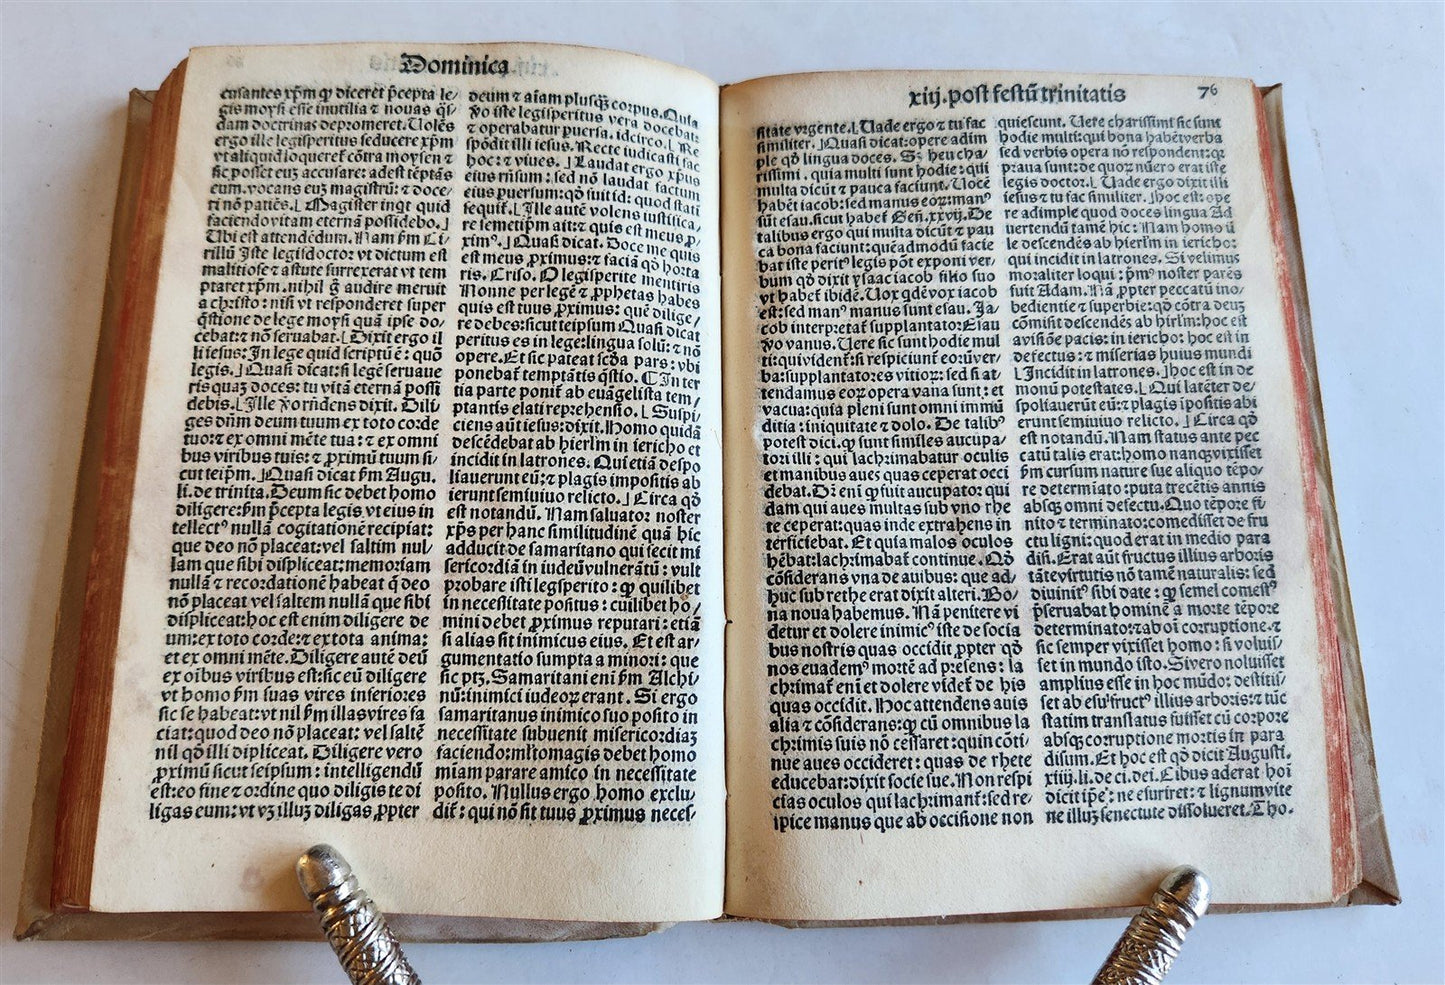 Dominica
cusantes xp̄m qꝫ diceret p̄cepta le⸗
gis moysi esse inutilia ⁊ nouas q̄s⸗
dam doctrinas depromeret. Uolēs
ergo ille legisperitus seducere xp̄m
vt aliquid loqueret̄ cōtra moysen ⁊
sic posset euꝫ accusare: adest tēptās
eum. vocans euꝫ magistrū: ⁊ doce⸗
ri nō patiēs. [Magister inqt quid
faciendo vitam eternā possidebo.]
Ubi est attendēdum. Nam ẜm Ci⸗
rillū Iste legisdoctor vt dictum est
malitiose ⁊ astute surrexerat vt tem
ptaret xp̄m. nihil g̊ audire meruit
a christo: nisi vt responderet super
q̄stione de lege moysi quā ipse do⸗
cebat: ⁊ nō seruabat. [Dixit ergo il
li iesus: In lege quid scriptū ē: quō
legis.] Quasi dicat: si legē seruaue
ris quaꝫ doces: tu vitā eternā possi
debis. [Ille v̊o rn̄dens dixit. Dili
ges dn̄m deum tuum ex toto corde
tuo: ⁊ ex omni mēte tua: ⁊ ex omni
bus viribus tuis: ⁊ ꝓximū tuum si
cut teip̄m.] Quasi dicat ẜm Augu.
li. de trinita. Deum sic debet homo
diligere: ẜm p̄cepta legis vt eius in
tellectꝰ nullā cogitationē recipiat:
que deo nō placeat: vel saltim nul⸗
lam que sibi displiceat: memoriam
nullā ⁊ recordationē habeat q̄ deo
nō placeat vel saltem nullā que sibi
displiceat: hoc est enim diligere de
um: ex toto corde: ⁊ ex tota anima:
et ex omni mēte. Diligere autē deū
ex oibus viribus est: sic eū diligere
vt homo ẜm suas vires inferiores
sic se habeat: vt nil ẜm illas vires fa
ciat: quod deo nō placeat: vel saltē
nil qḋ illi dipliceat. Diligere vero
ꝓximū sicut seipsum: intelligendū
est: eo fine ⁊ ordine quo diligis te di
ligas eum: vt vꝫ illuꝫ diligas ꝓpter
deum ⁊ aīam plusq̄ꝫ corpus. Quia
v̊o iste legisperitus vera docebat:
⁊ operabatur puersa. idcirco. [Re
spōdit illi iesus. Recte iudicasti fac
hoc: ⁊ viues.] Laudat ergo xp̄us
eius rn̄sum: sed nō laudat factum
eius puersum: qḋ fuit id: quod stati
sequit̄. [Ille autē volens iustifica⸗
re semetip̄m ait: ⁊ quis est meus ꝓ⸗
ximꝰ.] Quasi dicat. Doce me quis
est meus ꝓximus: ⁊ faciā qḋ horta
ris. Criso. O legisperite mentiris
Nonne per legē ⁊ ꝓphetas habes
quis est tuus ꝓximus: quē dilige⸗
re debes: sicut teipsum Quasi dicat
peritus es in lege: lingua solū: ⁊ nō
opere. Et sic pateat scḋa pars: vbi
ponebat̄ temptātis q̄stio. ¶ In ter
tia parte ponit̄ ab euāgelista tem⸗
ptantis elati reprehensio. [Suspi⸗
ciens aūt iesus: dixit. Homo quidā
descēdebat ab hierl̄m in iericho et
incidit in latrones. Qui etiā despo
liauerunt eū: ⁊ plagis impositis ab
ierunt semiuiuo relicto.] Circa qḋ
est notandū. Nam saluator noster
xp̄s per hanc similitudinē quā hic
adducit de samaritano qui fecit mi
sericordiā in iudeū vulnerātū: vult
probare isti legisperito: qꝫ quilibet
in necessitate positus: cuilibet ho⸗
mini debet ꝓximus reputari: etiā
si alias sit inimicus eius. Et est ar⸗
gumentatio sumpta a minori: que
sic ptꝫ. Samaritani eni ẜm Alchi⸗
nū: inimici iudeoꝝ erant. Si ergo
samaritanus inimico suo posito in
necessitate subuenit misericordiaꝫ
faciendo: ml̄tomagis debet homo
miam parare amico in necessitate
posito. Nullus ergo homo exclu⸗
dit̄: qui nō sit tuus ꝓximus neces⸗
xiij. post festū trinitatis 76
sitate vrgente. [Uade ergo ⁊ tu fac
similiter.] Quasi dicat: opere adim
ple qḋ lingua doces. Sꝫ heu cha⸗
rissimi. quia multi sunt hodie: qui
multa dicūt ⁊ pauca faciunt. Uocē
habēt iacob: sed manus eoꝝ: manꝰ
sūt esau. sicut habet̄ Gen̄. xxvij. De
talibus ergo qui multa dicūt ⁊ pau
ca bona faciunt: quēadmodū facie
bat iste peritꝰ legis pōt exponi ver⸗
bum qḋ dixit ysaac iacob filio suo
vt habet̄ ibidē. Uox qdē vox iacob
est: sed manꝰ manus sunt esau. Ja⸗
cob interpretat̄ supplantator: Esau
v̊o vanus. Uere sic sunt hodie mul
ti: qui vident̄: si respiciunt̄ eorū ver⸗
ba: supplantatores vitioꝝ: sed si at⸗
tendamus eoꝝ opera vana sunt: et
vacua: quia pleni sunt omni immū
ditia: iniquitate ⁊ dolo. De talibꝰ
potest dici. qꝫ sunt similes aucupa⸗
tori illi: qui lachrimabatur oculis
et manibus aues quas ceperat occi
debat. Dꝫ eni qꝫ fuit aucupator qui
dam qui aues multas sub vno rhe
te ceperat: quas inde extrahens in
terficiebat. Et quia malos oculos
hēbat: lachrimabat̄ continue. Qḋ
cōsiderans vna de auibus: que ad⸗
huc sub rethe erat dixit alteri. Bo⸗
na noua habemus. Nā penitere vi
detur et dolere inimicꝰ iste de socia
bus nostris quas occidit ꝓpter qḋ
nos euademꝰ mortē ad presens: la
chrimat̄ eni et dolere videt̄ de his
quas occidit. Hoc attendens auis
alia ⁊ cōsiderans: qꝫ cū omnibus la
chrimis suis nō cessaret: quin cōti⸗
nue aues occideret: quas de rhete
educebat: dixit socie sue. Non respi
cias oculos qui lachrimant̄: sed re⸗
spice manus que ab occisione non
quiescunt. Uere charissimi sic sunt
hodie multi: qui bona habēt verba
sed verbis opera nō respondent: qꝛ
praua sunt: de quoꝝ nūero erat iste
legis doctor. [Uade ergo dixit illi
iesus ⁊ tu fac similiter.] hoc est: ope
re adimple quod doces lingua Ad
uertendū tamē hic: Nam homo il
le descendēs ab hierl̄m in iericho:
qui incidit in latrones. Si velimus
moraliter loqui: p̄mꝰ noster parēs
fuit Adam. Nā ꝓpter peccatū ino⸗
bedientie ⁊ superbie: qḋ cōtra deuꝫ
cōmisit descendēs ab hirl̄m: hoc est
a visiōe pacis: in iericho: hoc est in
defectus: ⁊ miserias huius mundi
[Incidit in latrones.] hoc est in de
monū potestates. [Qui latēter de⸗
spoliauerūt eū: ⁊ plagis īpositis abi
erunt semiuiuo relicto.] Circa qḋ
est notandū. Nam status ante pec
catū talis erat: homo nanqꝫ vixisset
ẜm cursum nature sue aliquo tēpo⸗
re determīato: puta trecētis annis
absqꝫ omni defectu. Quo tēpore fi⸗
nito ⁊ terminato: comedisset de fru
ctu ligni: quod erat in medio para
disi. Erat aūt fructus illius arboris
tāte virtutis nō tamē naturalis: sed
diuinitꝰ sibi date: qꝫ semel comestꝰ
p̄seruabat hominē a morte tēpore
determinato: ⁊ ab oī corruptione. ⁊
sic semper vixisset homo: si voluis⸗
set in mundo isto. Si vero noluisset
amplius esse in hoc mūdo: destitis⸗
set ab esu fructꝰ illius arboris: ⁊ tūc
statim translatus fuisset cū corpore
absqꝫ corruptione mortis in para
disum. Et hoc est qḋ dicit Augusti.
xiiij. li. de ci. dei. Cibus aderat hoī
dicit ip̄e: ne esuriret: ⁊ lignum vite
ne illuꝫ senectute dissolueret. Tho.